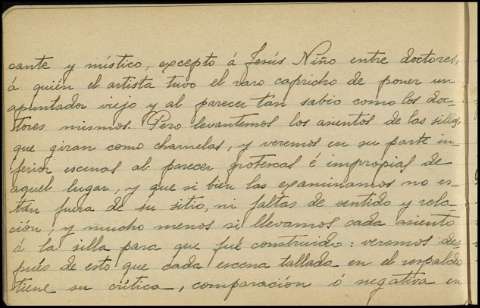 cante y místico, excepto á Jesús Niño entre doctores,
á quién el artista tuvo el raro capricho de poner un
apuntador viejo y al parecer tan sabio como los doc-
tores mismos. Pero levantemos los asientos de las sillas,
que giran como charnelas, y veremos en su parte in-
ferior escenas al parecer grotescas é impropias de
aquel lugar, y que si bien las examinamos no es-
tán fuera de su sitio, ni faltas de sentido y rela-
ción, y mucho menos si llevamos cada asiento
á la silla para que fué construido: veremos des-
pués de esto que cada escena tallada en el respaldo
tiene su crítica, comparación ó negativa en